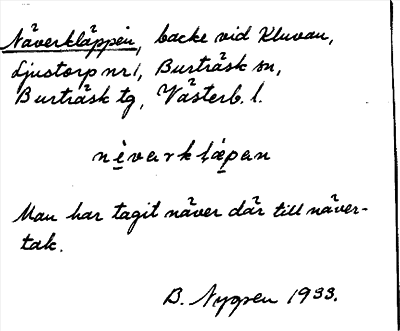 Näverkläppen, backe vid Kluvan,
Ljustorp nr 1, Burträsk sn,
Burträsk tg, Västerb. l.
nèvarkḷäpan
Man har tagit näver där till näver-
tak.
B. Nygren 1933.